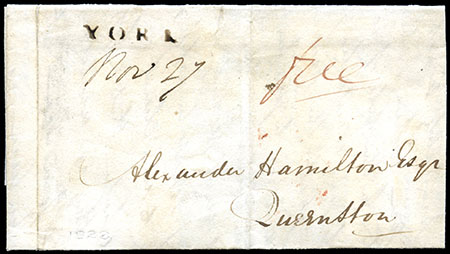 YORK
Nov 27 free
Alexander Hamilton Esqr
Queenston
1829